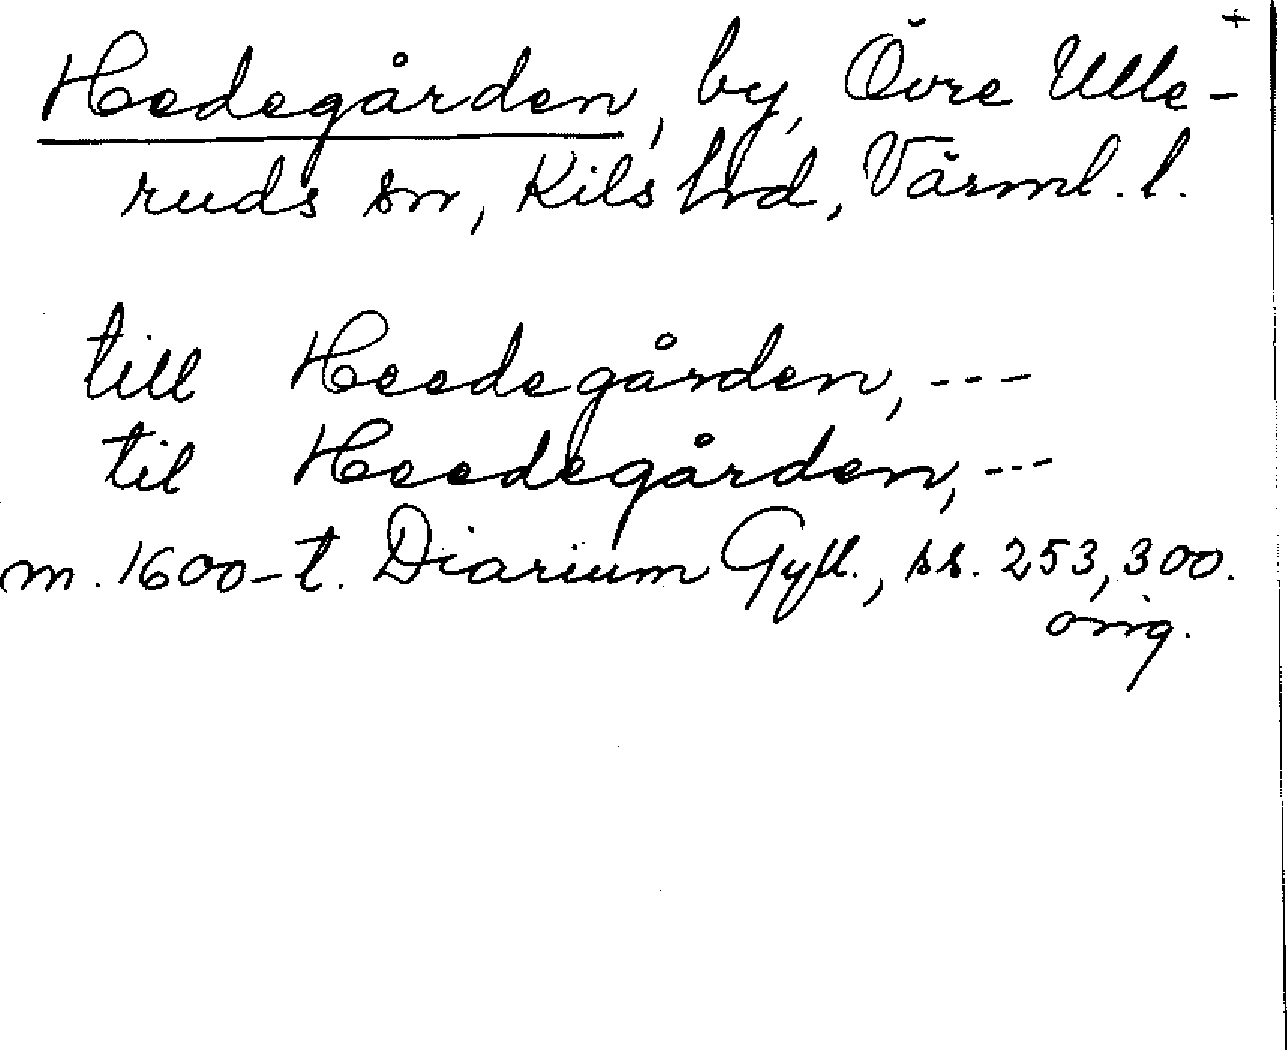 +
Hedegården, by, Övre Ulle-
ruds sn, Kils hrd, Värml. l.
till Heedegården, ---
til Heedegården, ---
m. 1600-t. Diarium Gyll., ss. 253, 300.
orig.